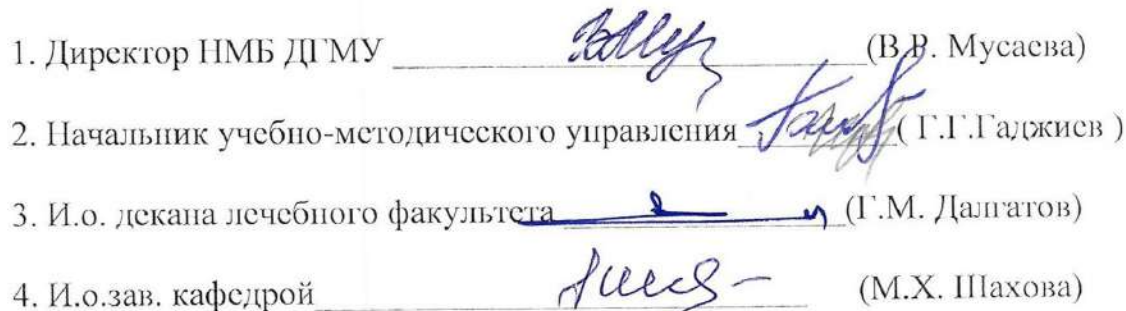 1. Директор НМБ ДГМУ (В.Р. Мусаева)
2. Начальник учебно-методического управления ( Г.Г.Гаджиев )
3. И.о. декана лечебного факультета (Г.М. Далгатов)
4. И.о.зав. кафедрой (М.Х. Шахова)